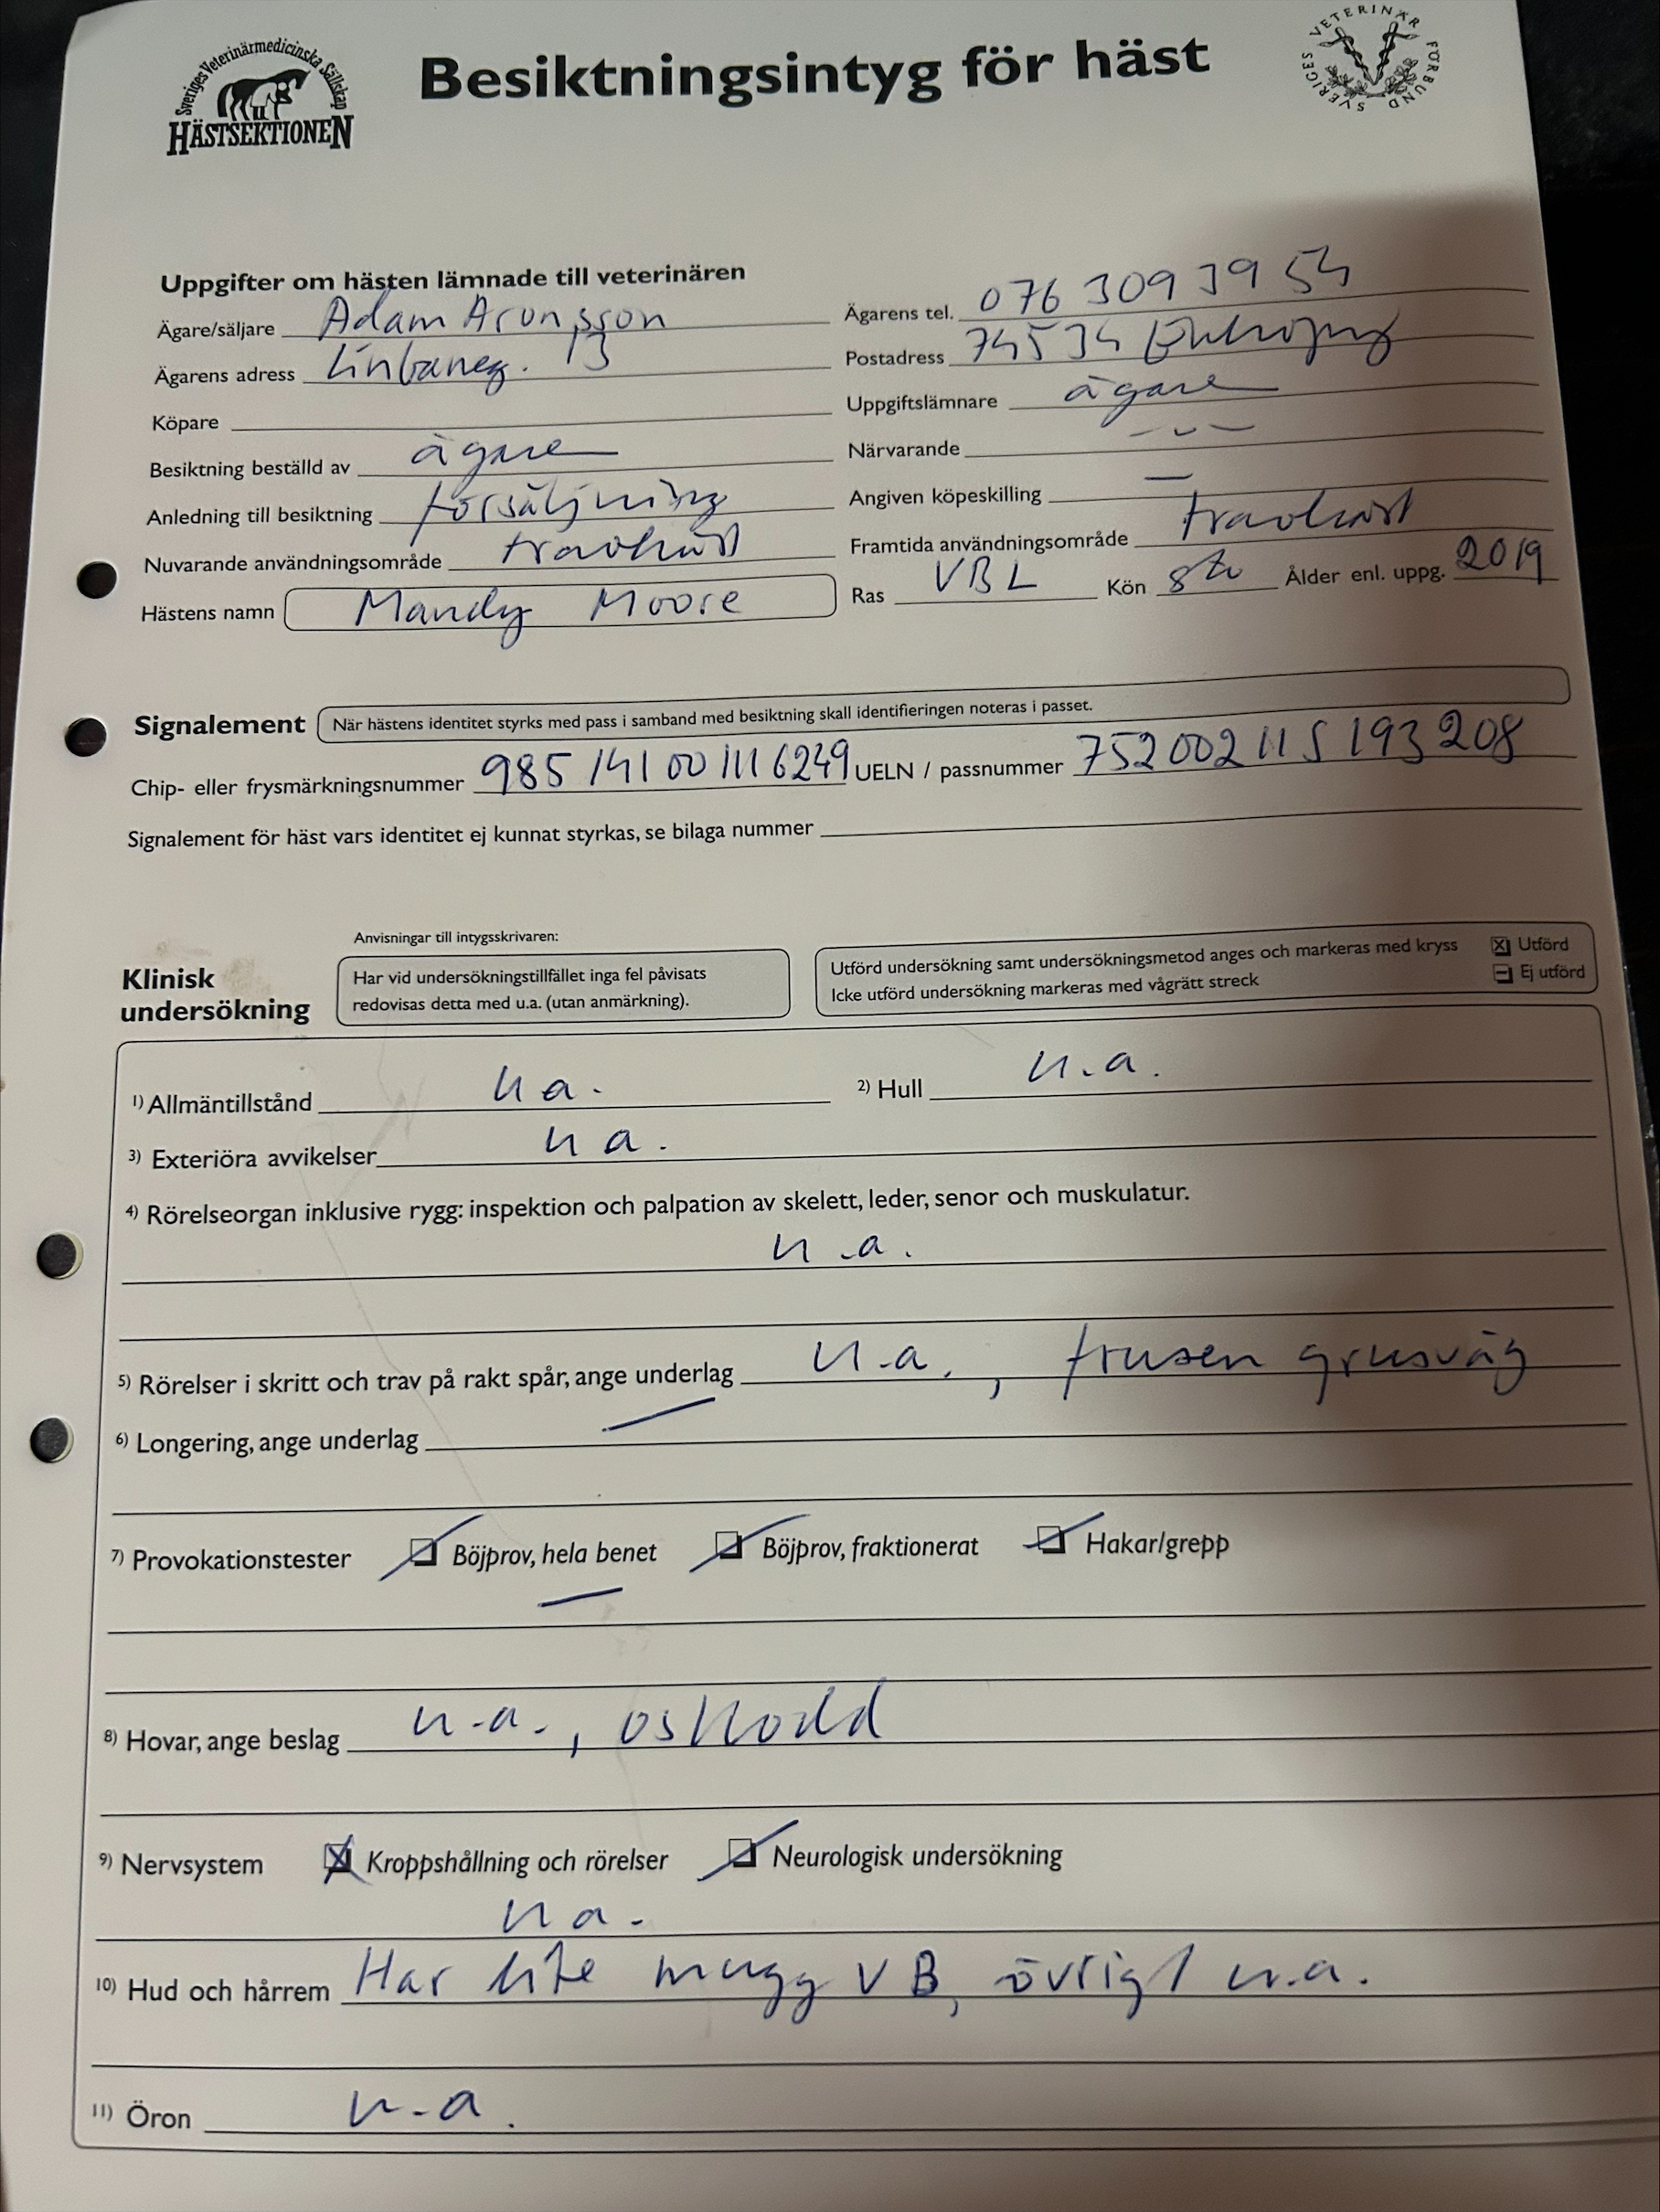 Sveriges Veterinärmedicinska Sällskap
HÄSTSEKTIONEN
Besiktningsintyg för häst
SVERIGES VETERINÄR FÖRBUND
Uppgifter om hästen lämnade till veterinären
Ägare/säljare Adam Aronsson Ägarens tel. 076 309 39 54
Ägarens adress Linbaneg. 13 Postadress 745 34 Enköping
Köpare Uppgiftslämnare ägare
Besiktning beställd av ägare Närvarande - " -
Anledning till besiktning försäljning Angiven köpeskilling —
Nuvarande användningsområde travhäst Framtida användningsområde travhäst
Hästens namn Mandy Moore Ras VBL Kön sto Ålder enl. uppg. 2019
Signalement När hästens identitet styrks med pass i samband med besiktning skall identifieringen noteras i passet.
Chip- eller frysmärkningsnummer 985 141 00 111 6249 UELN / passnummer 752 002 115 193 208
Signalement för häst vars identitet ej kunnat styrkas, se bilaga nummer
Anvisningar till intygsskrivaren:
Klinisk undersökning
Har vid undersökningstillfället inga fel påvisats
redovisas detta med u.a. (utan anmärkning).
Utförd undersökning samt undersökningsmetod anges och markeras med kryss Utförd
Icke utförd undersökning markeras med vågrätt streck Ej utförd
1) Allmäntillstånd u a. 2) Hull u.a.
3) Exteriöra avvikelser u a.
4) Rörelseorgan inklusive rygg: inspektion och palpation av skelett, leder, senor och muskulatur.
u.a.
5) Rörelser i skritt och trav på rakt spår, ange underlag u.a., frusen grusväg
6) Longering, ange underlag —
7) Provokationstester Böjprov, hela benet Böjprov, fraktionerat Hakar/grepp
—
8) Hovar, ange beslag u.a., oskodd
9) Nervsystem Kroppshållning och rörelser Neurologisk undersökning
u a.
10) Hud och hårrem Har lite mugg VB, övrigt u.a.
11) Öron u.a.